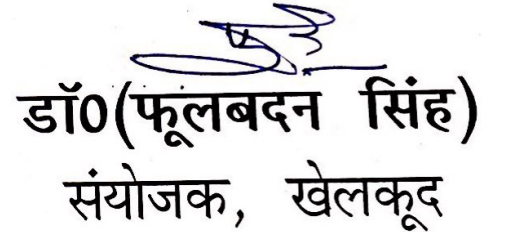 डॉ0(फूलबदन सिंह)
संयोजक, खेलकूद